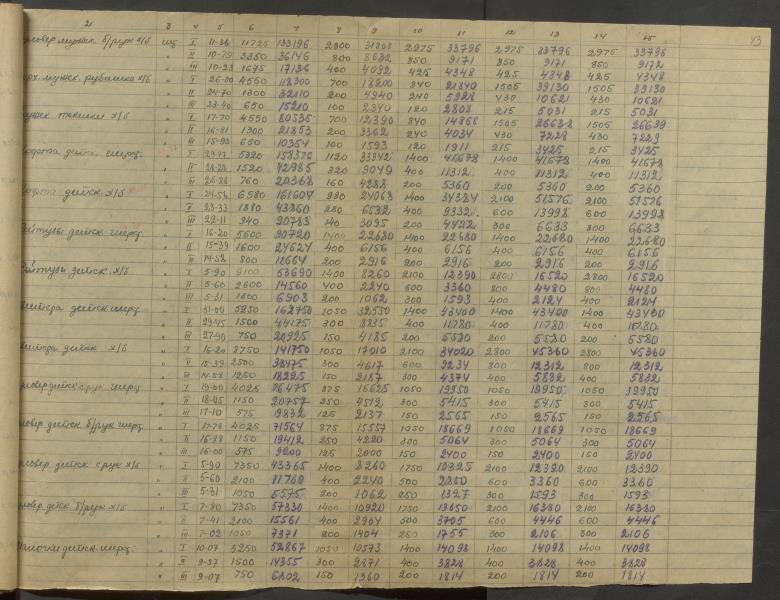 2 3 4 5 6 7 8 9 10 11 12 13 14 15
43
мужск. б/рук х/б шт I 11-36 11725 133196 2800 31808 2975 33796 2975 33796 2975 33796
" II 10-79 3350 36146 800 8632 850 9171 850 9171 850 9172
" III 10-23 1675 17136 400 4092 425 4348 425 4348 425 4348
мужск. рубашка х/б " I 26-00 4550 118300 700 18200 840 21840 1505 39130 1505 39130
" II 24-70 1300 32110 200 4940 240 5928 430 10621 430 10621
" III 23-40 650 15210 100 2340 120 2808 215 5031 215 5031
х/б " I 17-70 4550 80535 700 12390 840 14868 1505 26638 1505 26639
" II 16-81 1300 21853 200 3362 240 4034 430 7228 430 7229
" III 15-93 650 10354 100 1593 120 1911 215 3425 215 3425
детск. шерст. " I 5320 158376 1120 33342 1400 41678 1400 41678 1400 41678
" II 28-28 1520 42985 320 9049 400 11312 400 11312 400 11312
" III 26-80 760 20368 160 4288 200 5360 200 5360 200 5360
детск. х/б " I 24-56 6580 161604 980 24068 1400 34384 2100 51576 2100 51576
" II 23-33 1880 43860 280 6532 400 9332 600 13998 600 13998
" III 22-11 940 20783 140 3095 200 4422 300 6633 300 6633
детск. шерст. " I 16-20 5600 90720 1400 22680 1400 22680 1400 22680 1400 22680
" II 15-39 1600 24624 400 6156 400 6156 400 6156 400 6156
" III 14-58 800 11664 200 2916 200 2916 200 2916 200 2916
детск. х/б " I 5-90 9100 53690 1400 8260 2100 12390 2800 16520 2800 16520
" II 5-60 2600 14560 400 2240 600 3360 800 4480 800 4480
" III 5-31 1300 6903 200 1062 300 1593 400 2124 400 2124
детск. шерст. " I 31-00 5250 162750 1050 32550 1400 43400 1400 43400 1400 43400
" II 29-45 1500 44175 300 8835 400 11780 400 11780 400 11780
" III 27-90 750 20925 150 4185 200 5580 200 5580 200 5580
детск х/б " I 16-20 8750 141750 1050 17010 2100 34020 2800 45360 2800 45360
" II 15-39 2500 38475 300 4617 600 9234 800 12312 800 12312
" III 14-58 1250 18225 150 2187 300 4374 400 5832 400 5832
детск с рук. шерст. " I 19-00 4025 76475 875 16625 1050 19950 1050 19950 1050 19950
" II 18-05 1150 20757 250 4512 300 5415 300 5415 300 5415
" III 17-10 575 9832 125 2137 150 2565 150 2565 150 2565
детск. б/рук шерст. " I 17-78 4025 71564 875 15557 1050 18669 1050 18669 1050 18669
" II 16-88 1150 19412 250 4220 300 5064 300 5064 300 5064
" III 16-00 575 9200 125 2000 150 2400 150 2400 150 2400
детск с рук х/б " I 5-90 7350 43365 1400 8260 1750 10325 2100 12390 2100 12390
" II 5-60 2100 11760 400 2240 500 2800 600 3360 600 3360
" III 5-31 1050 5575 200 1062 250 1327 300 1593 300 1593
детск б/рук х/б " I 7-80 7350 57330 1400 10920 1750 13650 2100 16380 2100 16380
" II 7-41 2100 15561 400 2964 500 3705 600 4446 600 4446
" III 7-02 1050 7371 200 1404 250 1755 300 2106 300 2106
детск. шерст. " I 10-07 5250 52867 1050 10573 1400 14098 1400 14098 1400 14098
" II 9-57 1500 14355 300 2871 400 3828 400 3828 400 3828
" III 9-07 750 6802 150 1360 200 1814 200 1814 200 1814